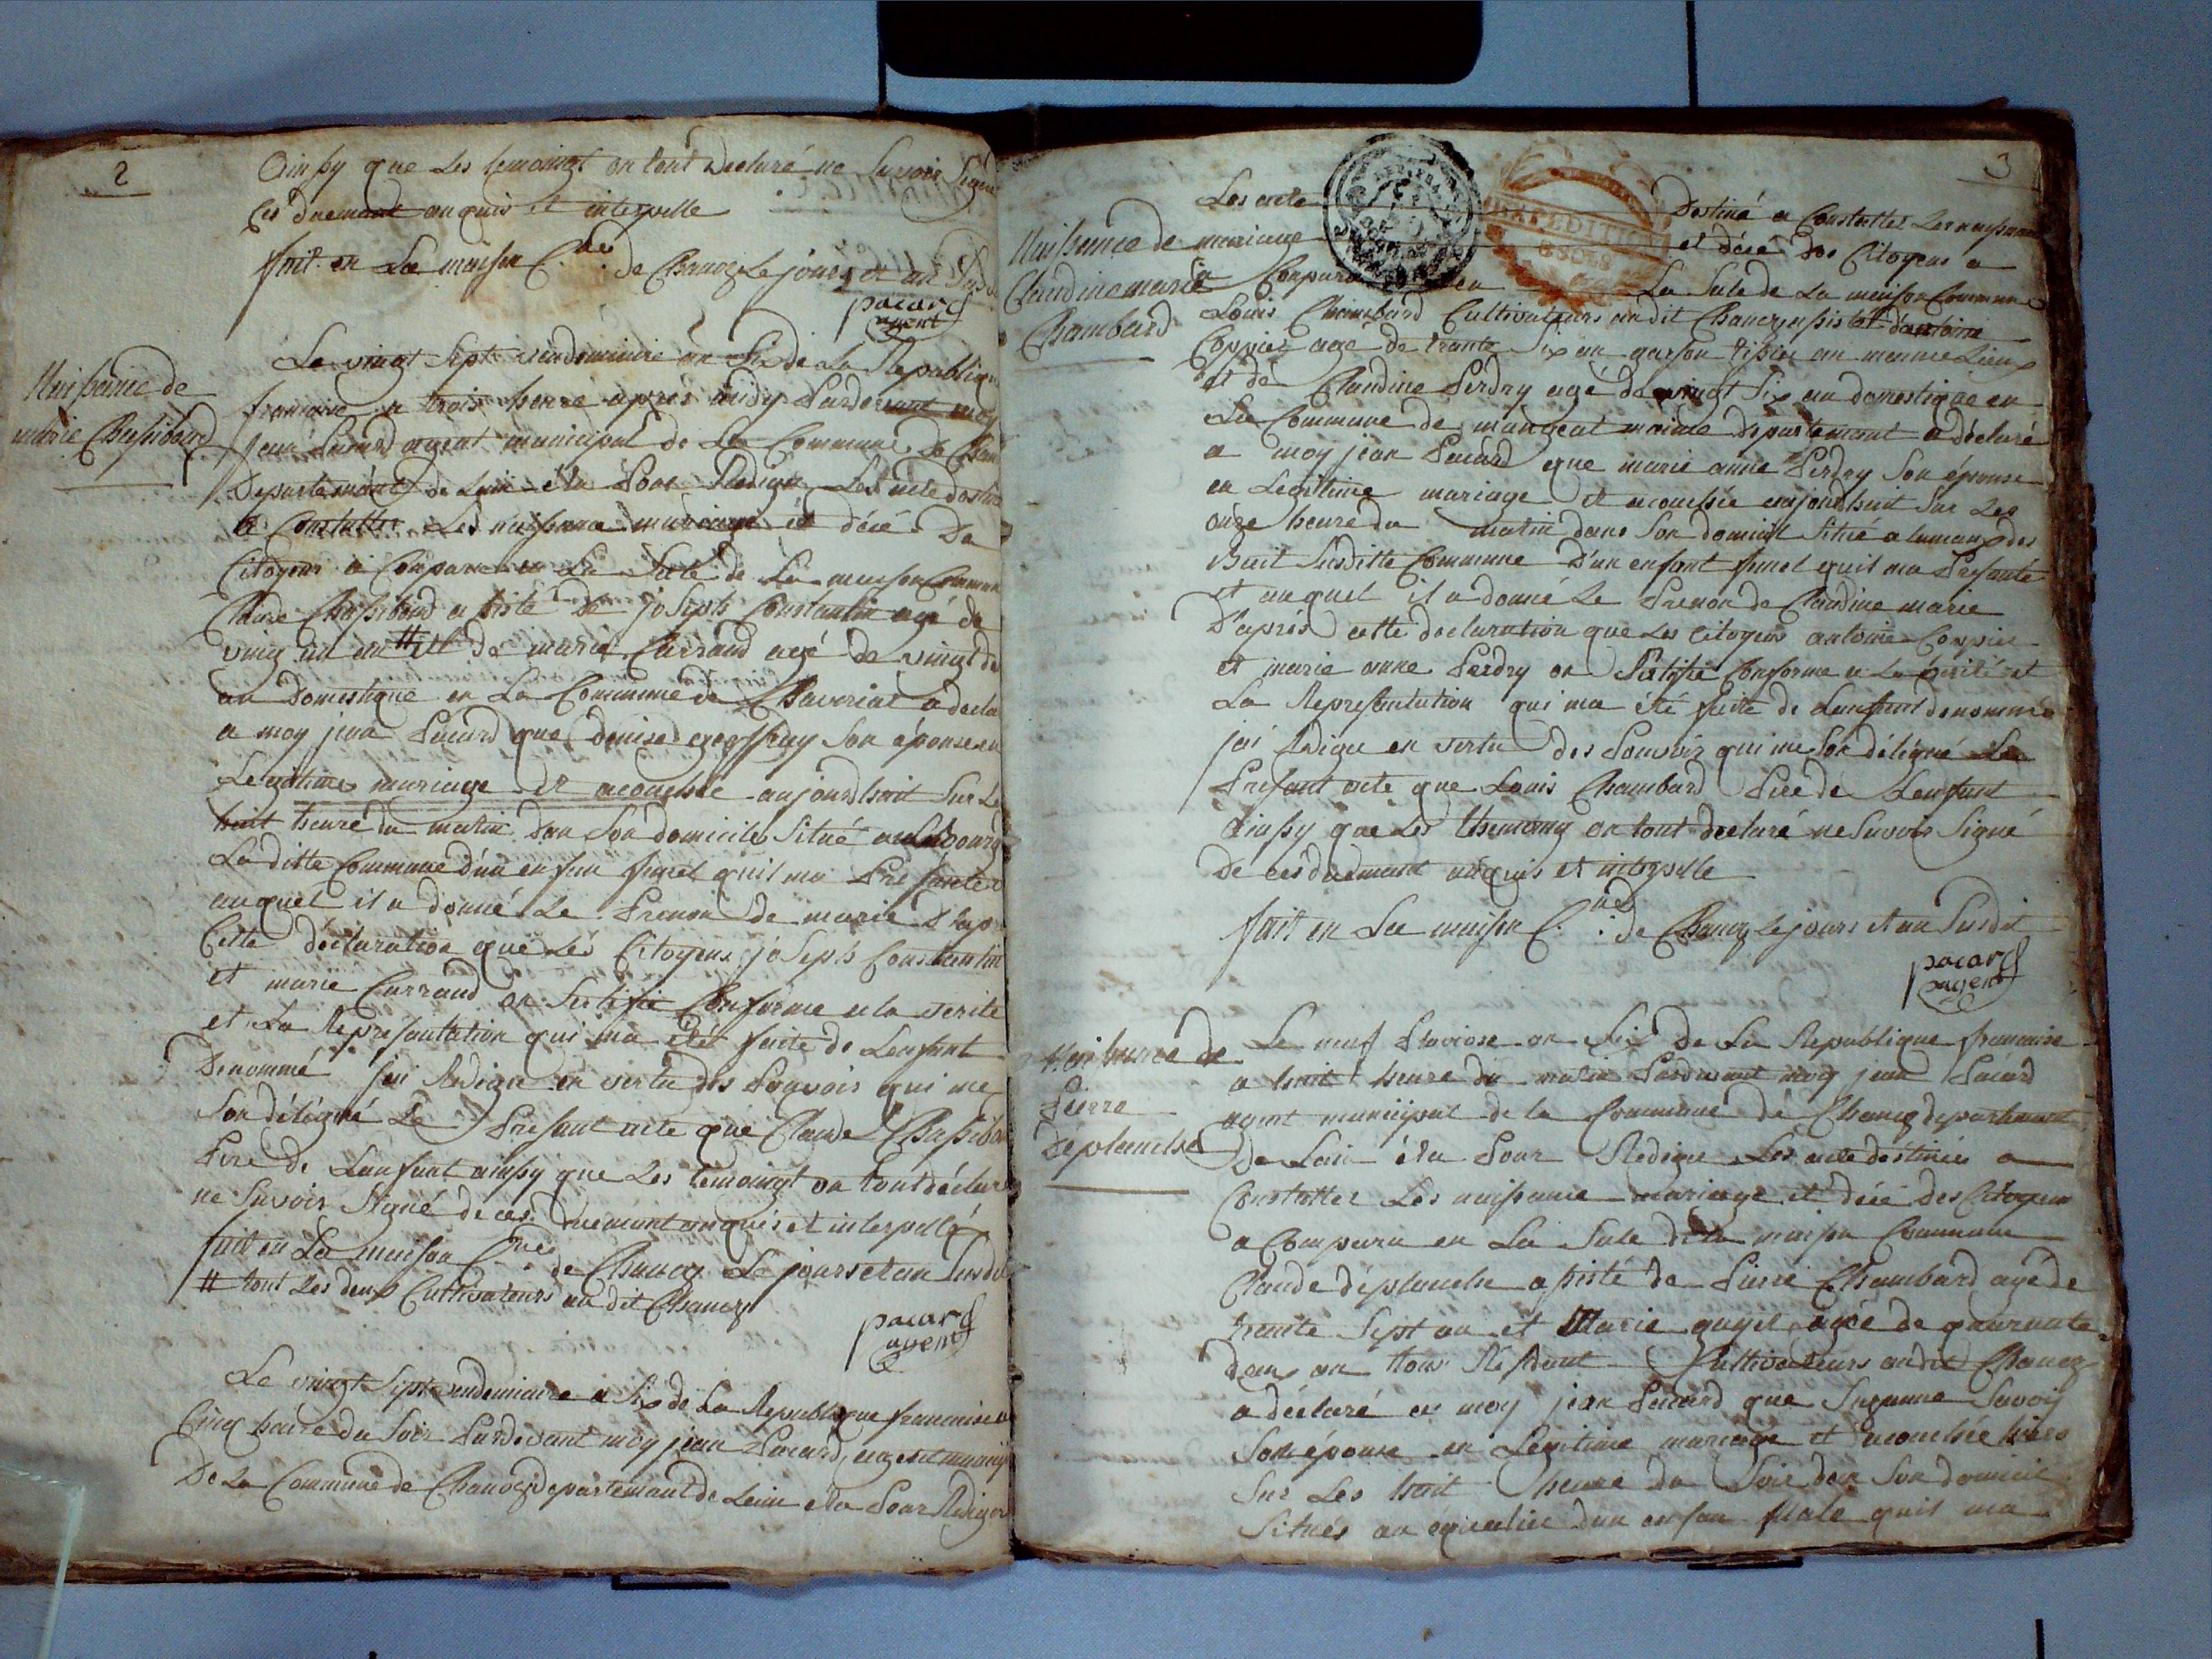 2
Ainsy que les temoingt on tout declaré ne savoir signé
ces duemant anquis et interpelle
fait en La maison C.ne de Chanoz Le jours et an
pacard
agent
Naissance de
marie Chassibaud
Le vingt sept vendeminire an Six de La Republique
francaise a trois heure apres midy Pardevant moy
jean Pacard agent municipal de La Commune de Chan
Departemant de Lain élu Pour Rediger Les acte destiné
a Constatter Les naissance mariage et décé De
Citoyens a Comparu en La Sale de La maison Commune
Claude Chassibaud asisté de joseph Constantin agé de
ving un an # et de marie Carraud agé de vingt de
an Domestique en La Commune de Chaveriat a decla
a moy jean Pacard que denise geoffray Son épouse en
Legitime mariage et acouchée aujourdhuit Sur Le
huit heure du matin dan Son domicile Situé au bourg
Laditte Commune d'un enfan fumel quil ma Presanter
auquel il a donné Le Prenon de marie d'apr
Cette déclaration que Les Citoyens joseph Constantin
et marie Carraud on Sertifié Conforme a la verite
et La Represantation qui ma été faite de Lenfant
Denommé jai Rediger en vertu des Pouvoir qui me
Son délégué Le Presant acte que Claude Chassibau
Pere de Lanfant ainsy que Les temoingt on tout déclaré
ne Savoir Signé de ces duemant anquis et interpellé
fait en La maison C.ne de Chanoz Le jours et an Susdit
# tout Les deux Cultivateurs au dit Chanoz
pacard
agent
Le vingt Sept vendemiaire a Six de La Republique francaise a
Cinq heure du Soir Pardevant moy jean Pacard, agent municip
De La Commune de Chanoz departemant de Lain élu Pour Rediger
3
Naissance de
Claudine marie
Chambard
Les acte Destiné a Constatter Les naissance
mariage et décé des Citoyens a
Comparu en La Sale de La maison Commune
Louis Chambard Cultivateurs audit Chanoz asisté d'antoine
Coppier agé de trante Six an garson tissier au meme Lieux
et de Claudine Perdry agé de vingt Six an domestique en
La Commune de maime departemant a déclaré
a moy jean Pacard que marie anne Perdry Son épouse
en Legitime mariage et acouchée aujourdhuit Sur Les
onze heure du matin dans Son domicil Situé a lamaux des
Buit Susditte Commune D'un enfant fumel quil ma Presanté
et auquel il a donné Le Prenon de Claudine marie
D'après cette declaration que Les citoyens antoine Coppier
et marie anne Perdry on Sertifié Conforme a La verité et
La Represantation qui ma été faite de Lanfant denommé
jai Rediger en vertu des Pouvoir qui me Son délégué Le
Presant acte que Louis Chambard Pere de Lenfant
ainsy que Les themoing on tout declaré ne Savoir Signé
De ces duemant anquis et interpelle
fait en La maison C.ne de Chanoz Le jours et an Susdit
pacard
agent
Naissance de
Pierre
Deplanche
Le neuf Pluviose an Six De La Republique francaise
a huit heure du matin Pardevant moy jean Pacard
agent municipal de la Commune de Chanoz departemant
De Lain élu Pour Rediger Les acte déstinés a
Constatter Les naissance mariage et décé des Citoyens
a Comparu en La Sale de la maison Commune
Claude déplanche assisté de Pierre Chambard agé de
trante Sept an et Marie guyet agée de quarante
deux an tous Résidant Cultivateurs audit Chanoz
a déclaré a moy jean Pacard que Suzanne Savoy
Son épouse en Legitime mariage et acouchée hiers
Sur Les huit heure du Soir dan Son domicil
Situés au dun enfan Male quil ma